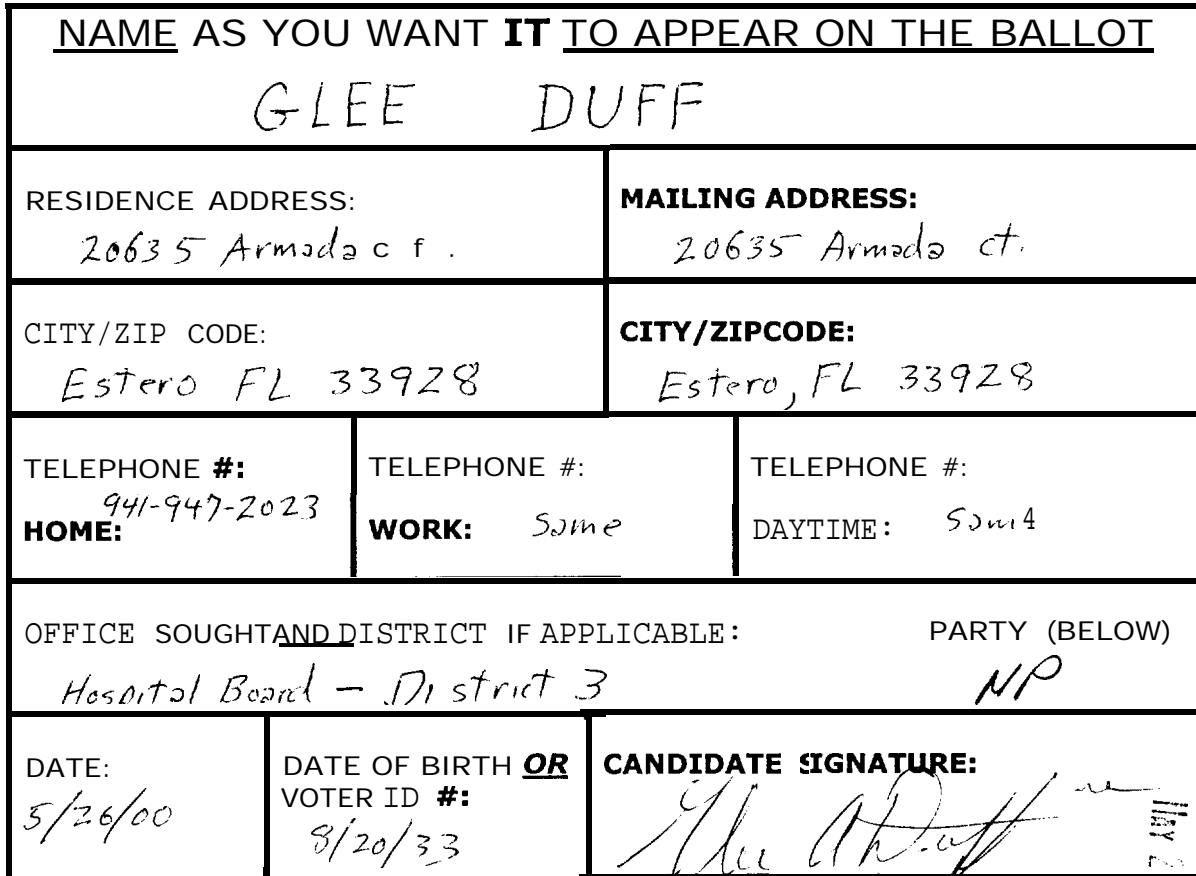 NAME AS YOU WANT IT TO APPEAR ON THE BALLOT
GLEE DUFF
RESIDENCE ADDRESS:
20635 Armada c f .
MAILING ADDRESS:
20635 Armada ct.
CITY/ZIP CODE:
Estero FL 33928
CITY/ZIPCODE:
Estero, FL 33928
TELEPHONE #:
941-947-2023
HOME:
TELEPHONE #:
WORK: Same
TELEPHONE #:
DAYTIME: Sam4
OFFICE SOUGHT AND DISTRICT IF APPLICABLE:
Hospital Board - District 3
PARTY (BELOW)
NP
DATE:
5/26/00
DATE OF BIRTH OR
VOTER ID #:
8/20/33
CANDIDATE SIGNATURE:
Glee A Duff
MAY 2